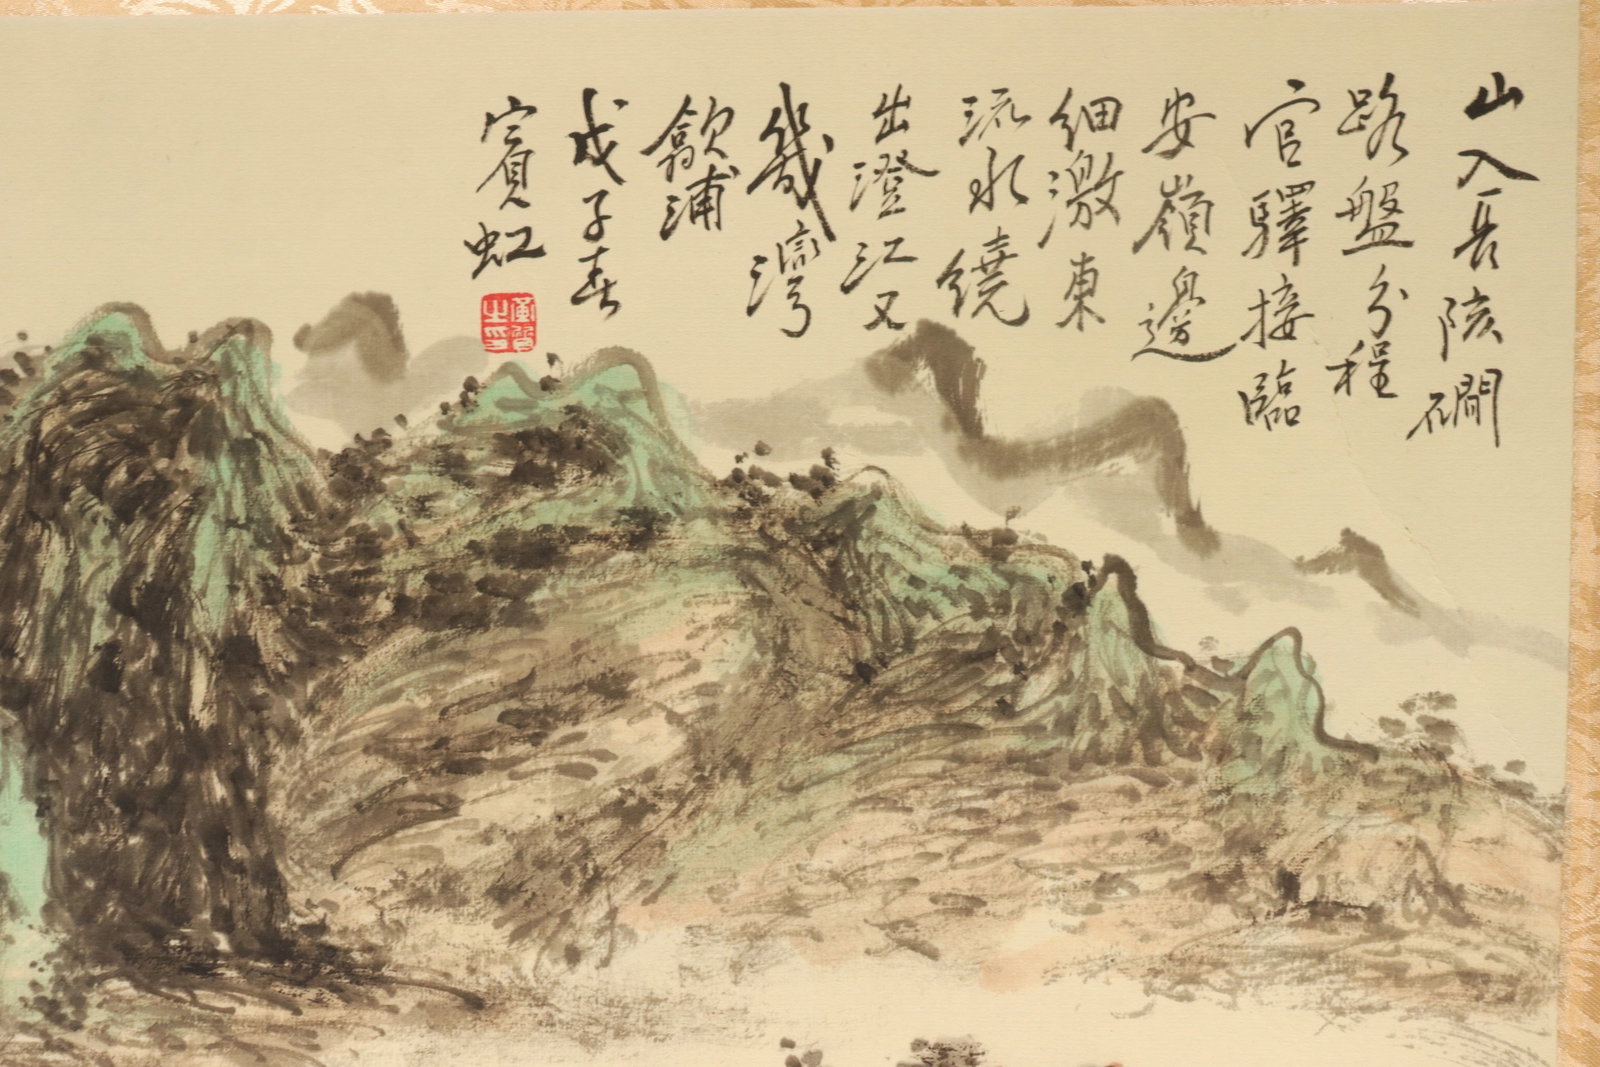 山入長陔磵
路盤分程
官驛接臨
安嶺邊
細激東
流水繞
出澄江又
幾灣
歙浦
戊子春
賓虹
黃質之印